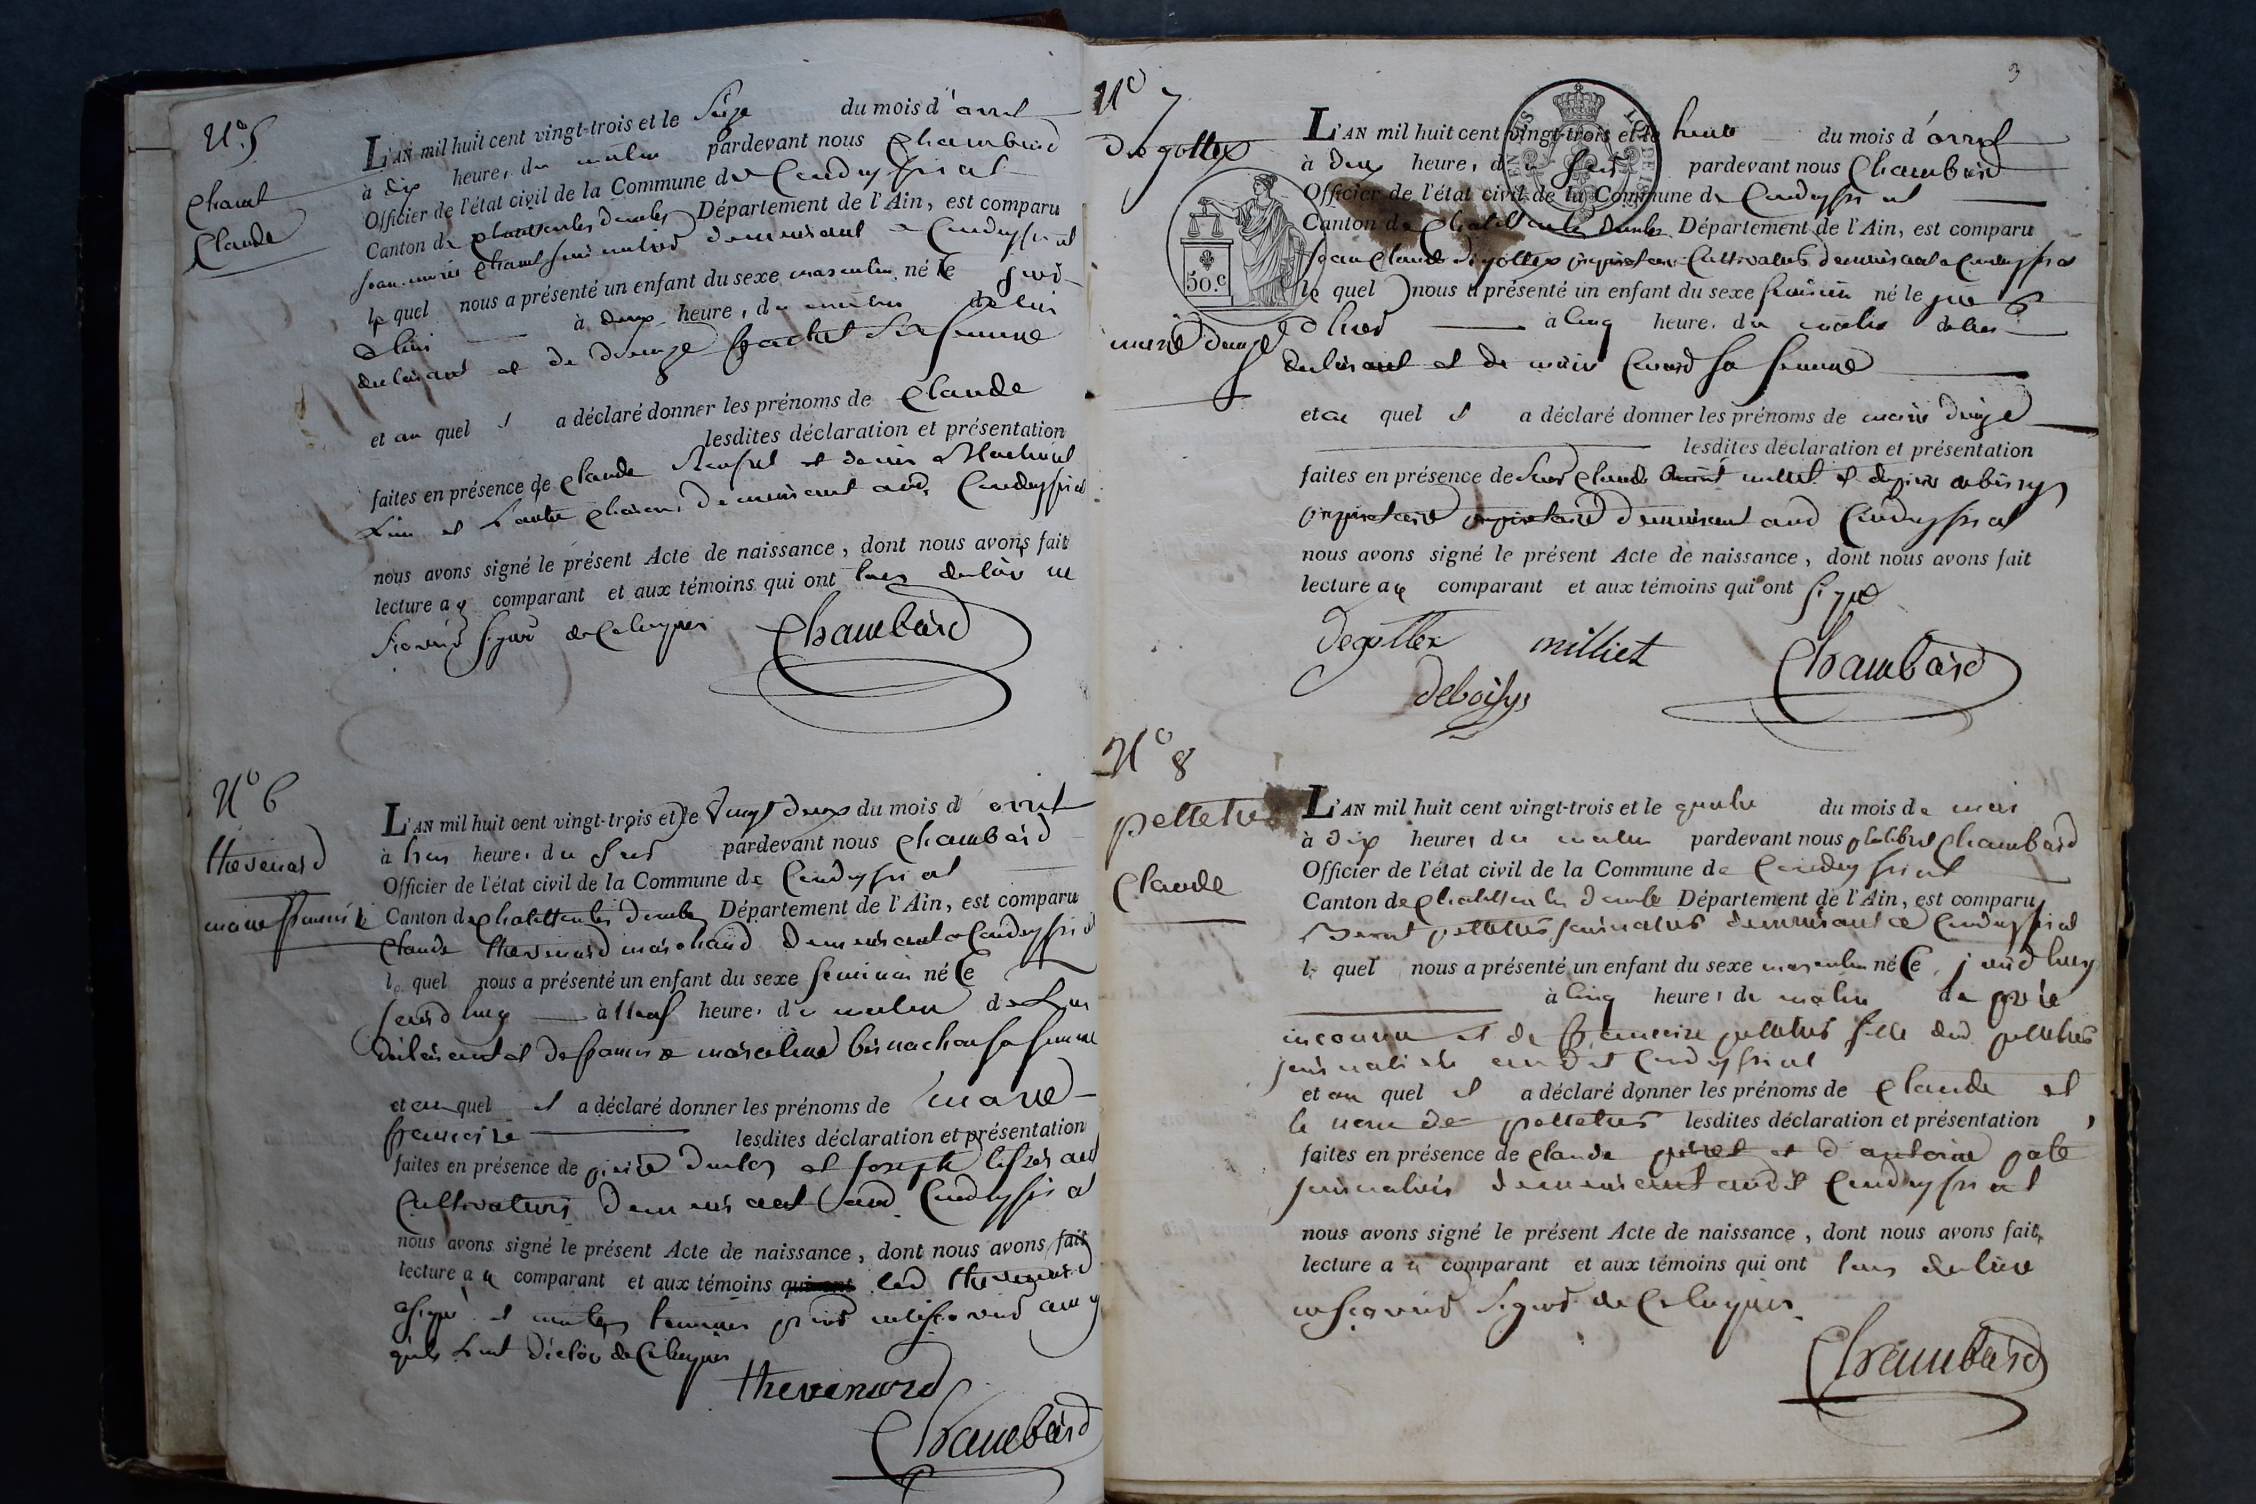 N°. 5
Chanel
Claude
L'AN mil huit cent vingt-trois et le Seize du mois d'avril
à dix heures du matin pardevant nous Chambard
Officier de l'état civil de la Commune de Condeyssiat
Canton de Chatillon les Dombes Département de l'Ain, est comparu
Jean marie demeurant a Condeyssiat
le quel nous a présenté un enfant du sexe masculin né le
à deux heures du matin de lui
declarant et de sa femme
et au quel il a déclaré donner les prénoms de Claude
lesdites déclaration et présentation
faites en présence de Claude et
l'un et l'autre demeurant aud. Condeyssiat
nous avons signé le présent Acte de naissance, dont nous avons fait
lecture au comparant et aux témoins qui ont tous declare ne
scavoir signer de ce enquis
Chambard
N° 6
thevenard
marie francoise
L'AN mil huit cent vingt-trois et le vingt deux du mois d'avril
à trois heures du soir pardevant nous Chambard
Officier de l'état civil de la Commune de Condeyssiat
Canton de Chatillon les Dombes Département de l'Ain, est comparu
Claude thevenard marchand demeurant a Condeyssiat
le quel nous a présenté un enfant du sexe feminin né le
jourd huy à neuf heures du matin de lui
declarant et de sa femme
et au quel il a déclaré donner les prénoms de marie
francoise lesdites déclaration et présentation
faites en présence de pierre et joseph
Cultivateurs demeurant aud. Condeyssiat
nous avons signé le présent Acte de naissance, dont nous avons fait
lecture au comparant et aux témoins qui ont led thevenard
a signé et non les temoins pour ne scavoir
qu'ils ont déclaré de ce enquis
thevenard
Chambard
3
N° 7
degottex
marie denise
50.c
L'AN mil huit cent vingt-trois et le trente du mois d'avril
à deux heures du soir pardevant nous Chambard
Officier de l'état civil de la Commune de Condeyssiat
Canton de Chatillon les Dombes Département de l'Ain, est comparu
Jean Claude degottex Cultivateur demeurant a Condeyssiat
le quel nous a présenté un enfant du sexe feminin né le jour
d'hier à cinq heures du matin de lui
declarant et de marie sa femme
et au quel il a déclaré donner les prénoms de marie denise
lesdites déclaration et présentation
faites en présence de Claude milliet et
proprietaire demeurant aud Condeyssiat
nous avons signé le présent Acte de naissance, dont nous avons fait
lecture au comparant et aux témoins qui ont signé
degottex milliet Chambard
deboissys
N° 8
pelletier
Claude
L'AN mil huit cent vingt-trois et le quatre du mois de mai
à dix heures du matin pardevant nous philibert Chambard
Officier de l'état civil de la Commune de Condeyssiat
Canton de Chatillon les Dombes Département de l'Ain, est comparu
Benoit pelletier journalier demeurant a Condeyssiat
le quel nous a présenté un enfant du sexe masculin né le jourd huy
à cinq heures du matin de père
inconnu et de francoise pelletier fille dud pelletier
journaliere audit Condeyssiat
et au quel il a déclaré donner les prénoms de Claude et
le nom de pelletier lesdites déclaration et présentation
faites en présence de Claude et d'antoine
journaliers demeurant audit Condeyssiat
nous avons signé le présent Acte de naissance, dont nous avons fait
lecture au comparant et aux témoins qui ont tous declare
ne scavoir signer de ce enquis.
Chambard